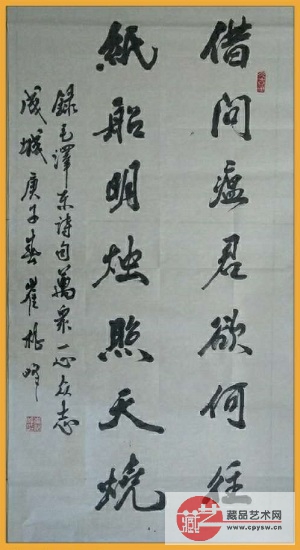 借问瘟君欲何往
紙船明烛照天燒
録毛澤东诗句萬众一心众志
成城庚子春崔桃峰
藏品艺术网
www.cpysw.cn